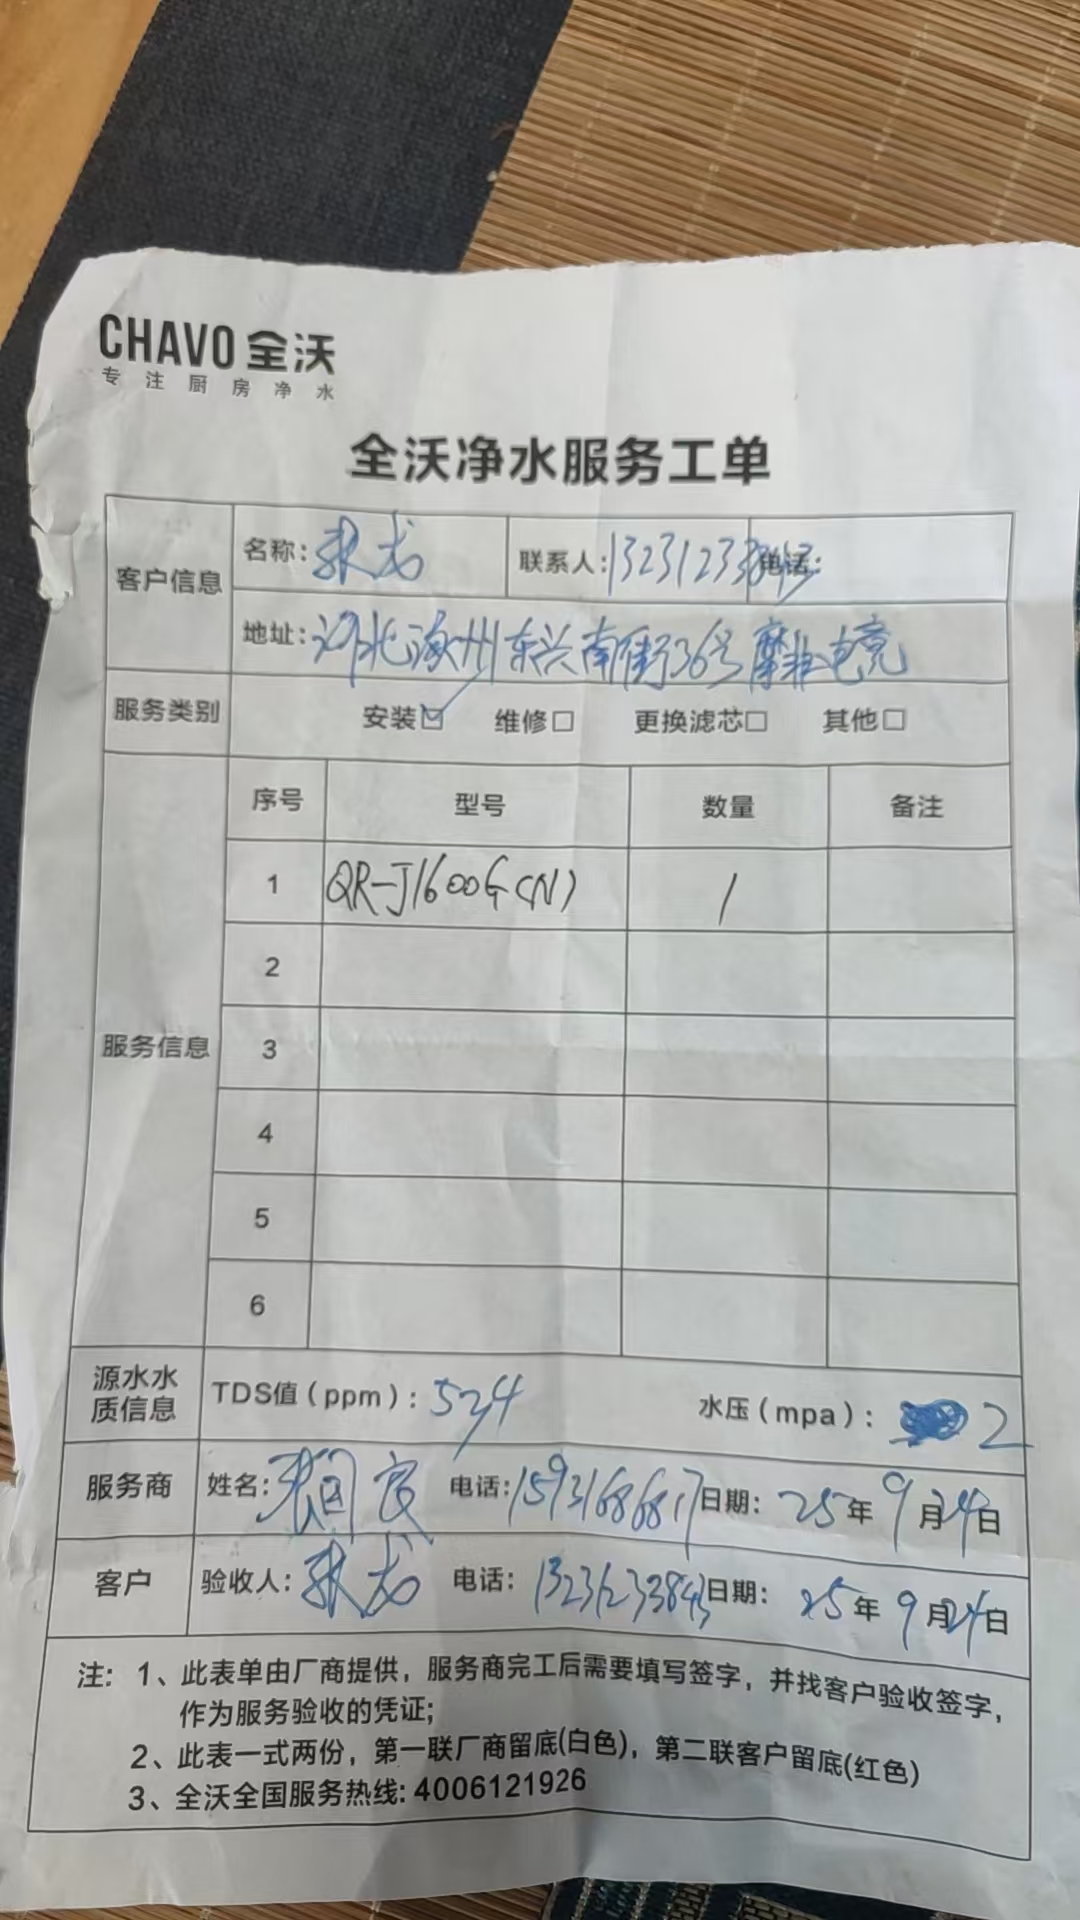 CHAVO 全沃
专注厨房净水
全沃净水服务工单
客户信息
名称: 张龙 联系人: 13231233843 电话:
地址: 河北涿州东兴南街36号摩登电竞
服务类别 安装☑ 维修□ 更换滤芯□ 其他□
服务信息
序号 型号 数量 备注
1 QR-J1600G(N) 1
2
3
4
5
6
源水水质信息 TDS值（ppm）: 524 水压（mpa）: 2
服务商 姓名: 张 良 电话: 15931686817 日期: 25年9月24日
客户 验收人: 张龙 电话: 13231233843 日期: 25年9月24日
注: 1、此表单由厂商提供，服务商完工后需要填写签字，并找客户验收签字，
作为服务验收的凭证;
2、此表一式两份，第一联厂商留底(白色)，第二联客户留底(红色)
3、全沃全国服务热线: 4006121926